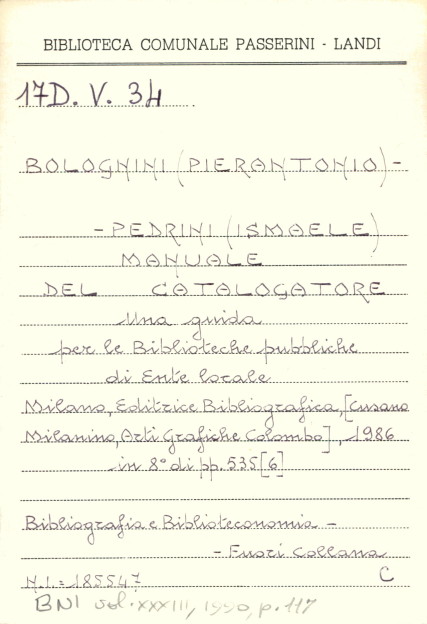 BIBLIOTECA COMUNALE PASSERINI - LANDI
17D. V. 34
BOLOGNINI (PIERANTONIO) -
- PEDRINI (ISMAELE)
MANUALE
DEL CATALOGATORE
Una guida
per le Biblioteche pubbliche
di Ente locale
Milano, Editrice Bibliografica, [Cusano
Milanino, Arti Grafiche Colombo], 1986
in 8° di pp. 535 [6]
Bibliografia e Biblioteconomia -
- Fuori Collana
N.I. = 185547 C
BNI vol. XXXIII, 1990, p. 117